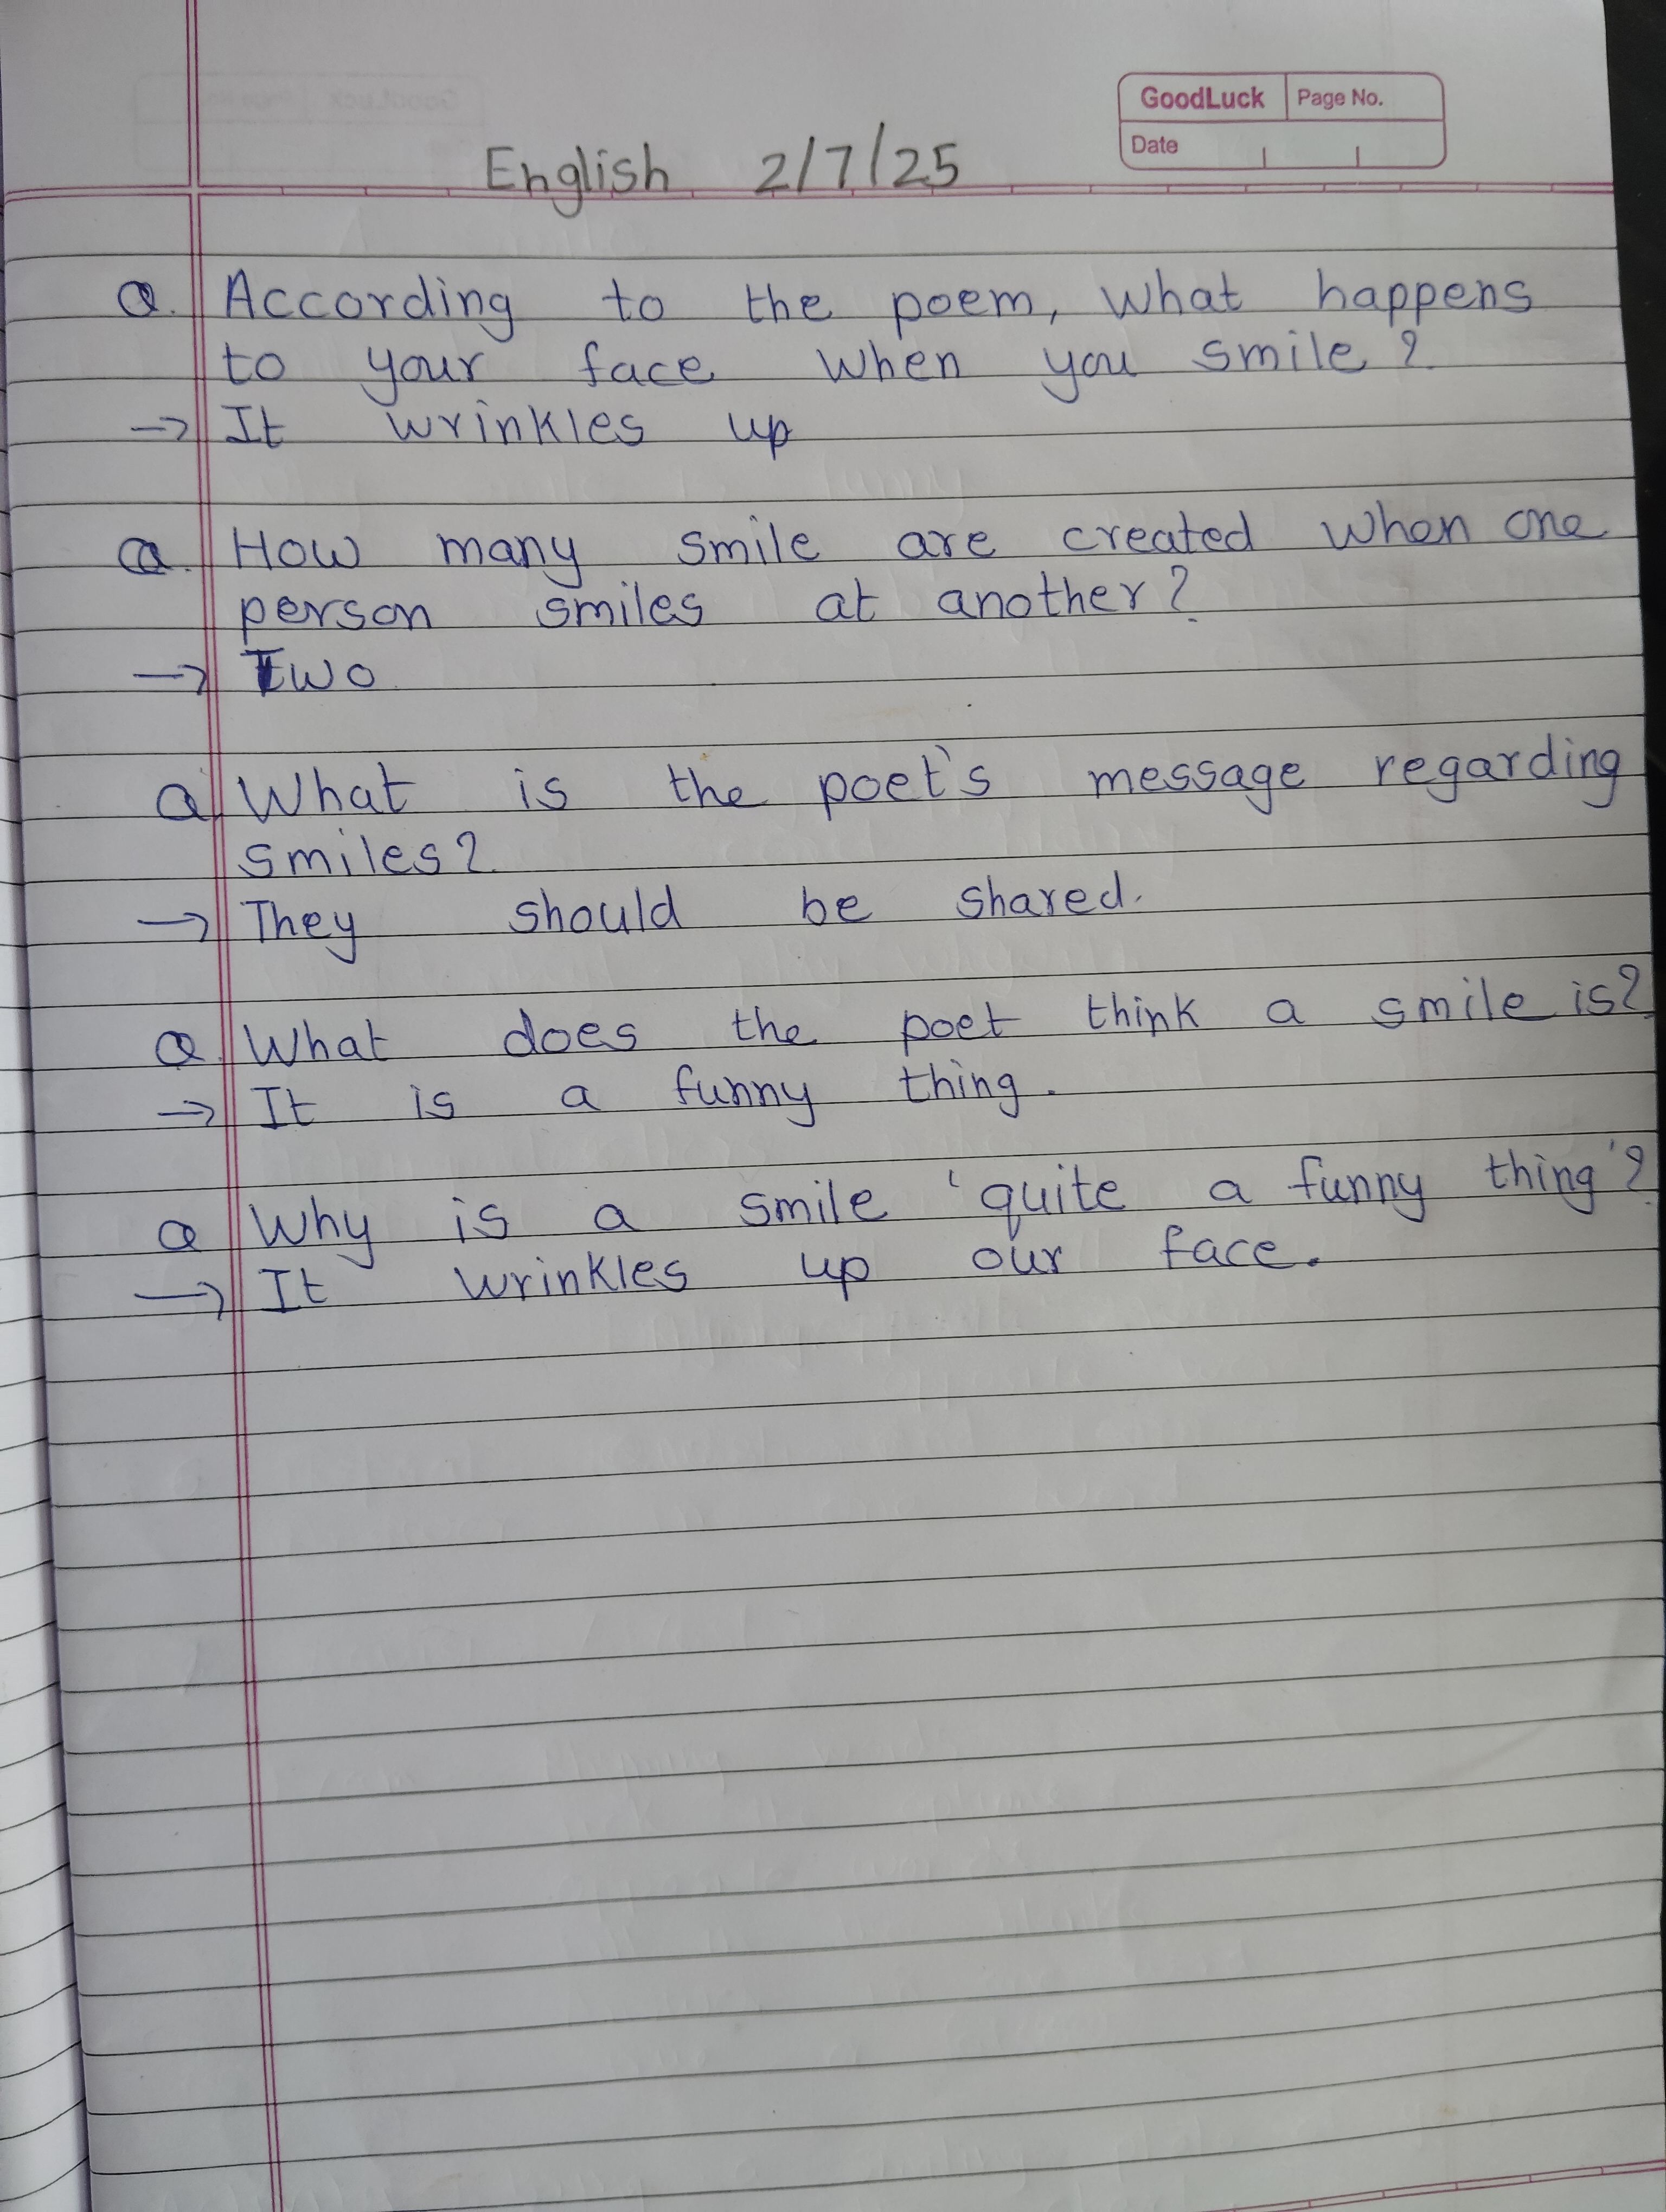 GoodLuck Page No.
Date
English 2/7/25
Q. According to the poem, what happens
to your face when you smile?
→ It wrinkles up
Q. How many smile are created when one
person smiles at another?
→ Two
Q. What is the poet's message regarding
smiles?
→ They should be shared.
Q. What does the poet think a smile is?
→ It is a funny thing.
Q Why is a smile 'quite a funny thing'?
→ It wrinkles up our face.